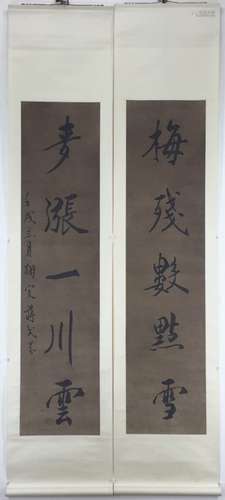 梅殘數點雪
麥漲一川雲
壬戌三月